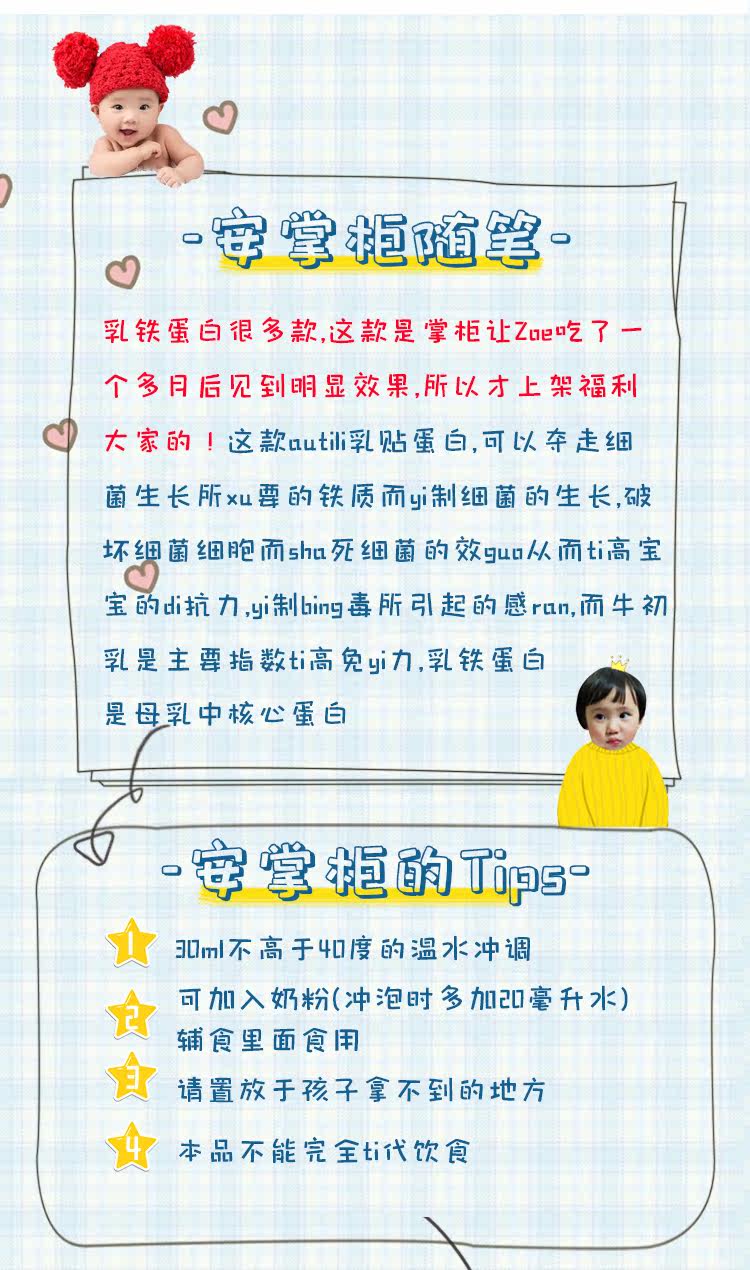 -安掌柜随笔-
乳铁蛋白很多款,这款是掌柜让Zoe吃了一
个多月后见到明显效果,所以才上架福利
大家的！这款autili乳贴蛋白,可以夺走细
菌生长所xu要的铁质而yi制细菌的生长,破
坏细菌细胞而sha死细菌的效guo从而ti高宝
宝的di抗力,yi制bing毒所引起的感ran,而牛初
乳是主要指数ti高免yi力,乳铁蛋白
是母乳中核心蛋白
-安掌柜的Tips-
1 30ml不高于40度的温水冲调
2 可加入奶粉(冲泡时多加20毫升水)
辅食里面食用
3 请置放于孩子拿不到的地方
4 本品不能完全ti代饮食